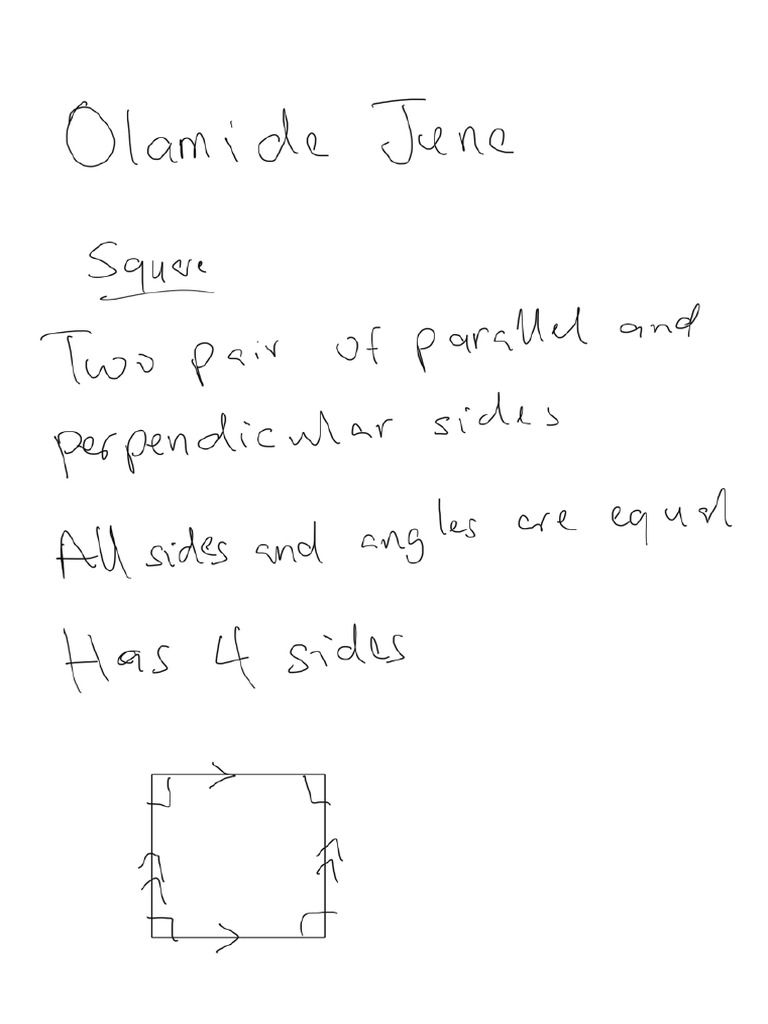 Olamide June
Square
Two pair of parallel and
perpendicular sides
All sides and angles are equal
Has 4 sides